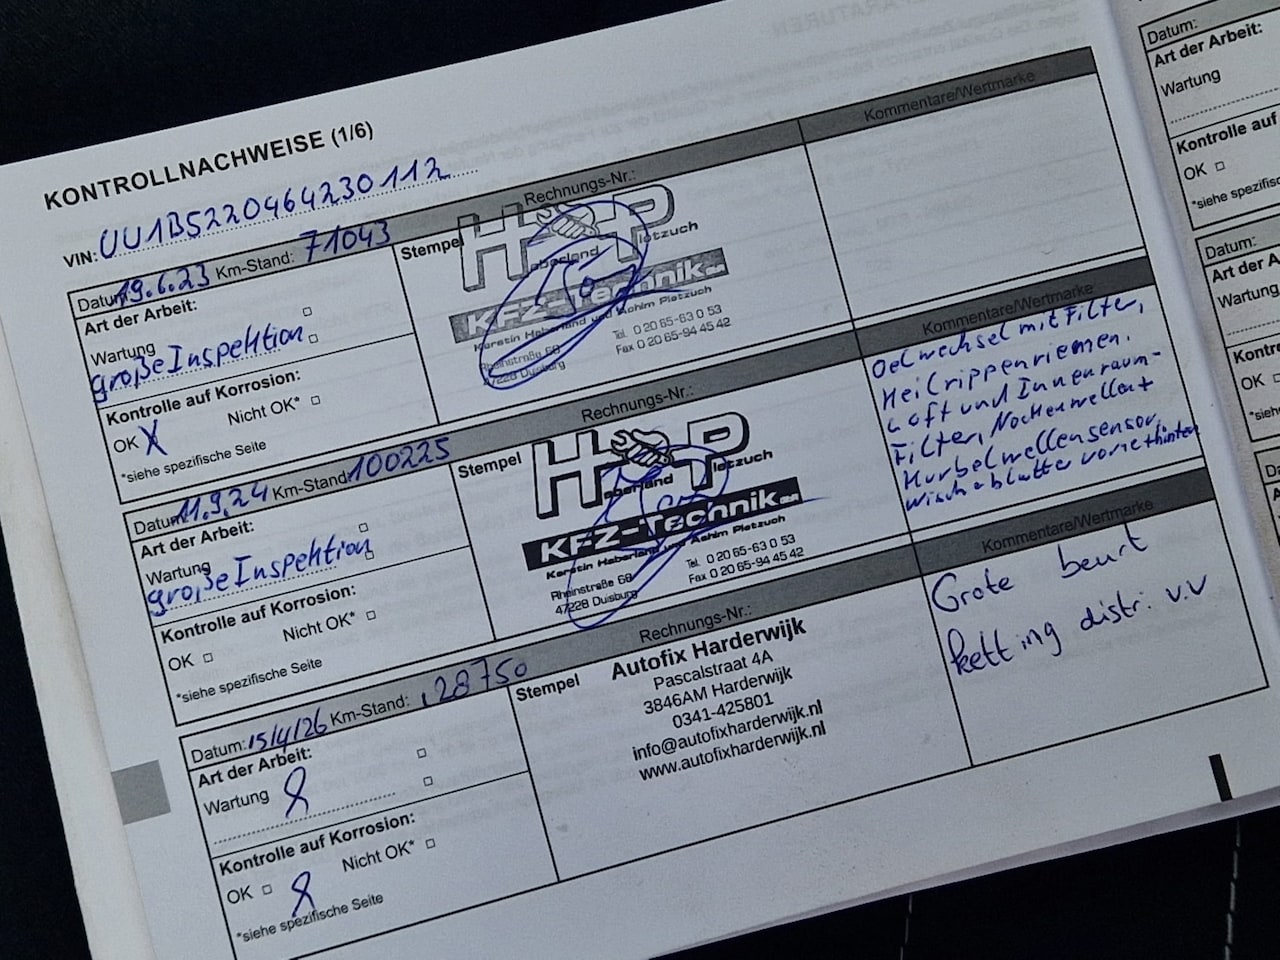 KONTROLLNACHWEISE (1/6)
VIN: UU1B5220464230112
Datum: 19.6.23 Km-Stand: 71043
Rechnungs-Nr.:
Kommentare/Wertmarke
Art der Arbeit:
Wartung
große Inspektion
Kontrolle auf Korrosion:
OK X Nicht OK*
*siehe spezifische Seite
Stempel
H P
aberland letzuch
KFZ-Technik
Kerstin Haberland und Achim Pletzuch
Rheinstraße 68
47228 Duisburg
Tel. 0 20 65-63 0 53
Fax 0 20 65-94 45 42
Datum: 11.9.24 Km-Stand: 100225
Rechnungs-Nr.:
Kommentare/Wertmarke
Art der Arbeit:
Wartung
große Inspektion
Kontrolle auf Korrosion:
OK Nicht OK*
*siehe spezifische Seite
Stempel
H P
aberland letzuch
KFZ-Technik
Kerstin Haberland und Achim Pletzuch
Rheinstraße 68
47228 Duisburg
Tel. 0 20 65-63 0 53
Fax 0 20 65-94 45 42
Oelwechsel mit Filter,
Keilrippenriemen.
Luft und Innenraum-
Filter, Nockenwelle
Kurbelwellensensor,
wischblätter vorne hinten
Datum: 15/4/26 Km-Stand: 128750
Rechnungs-Nr.:
Kommentare/Wertmarke
Art der Arbeit:
Wartung
Kontrolle auf Korrosion:
OK Nicht OK*
*siehe spezifische Seite
Stempel
Autofix Harderwijk
Pascalstraat 4A
3846AM Harderwijk
0341-425801
info@autofixharderwijk.nl
www.autofixharderwijk.nl
Grote beurt
ketting distri. v.v
Datum:
Art der Arbeit:
Wartung
Kontrolle auf
OK
*siehe spezifisc
Datum:
Art der A
Wartung
Kontr
OK
*sieh